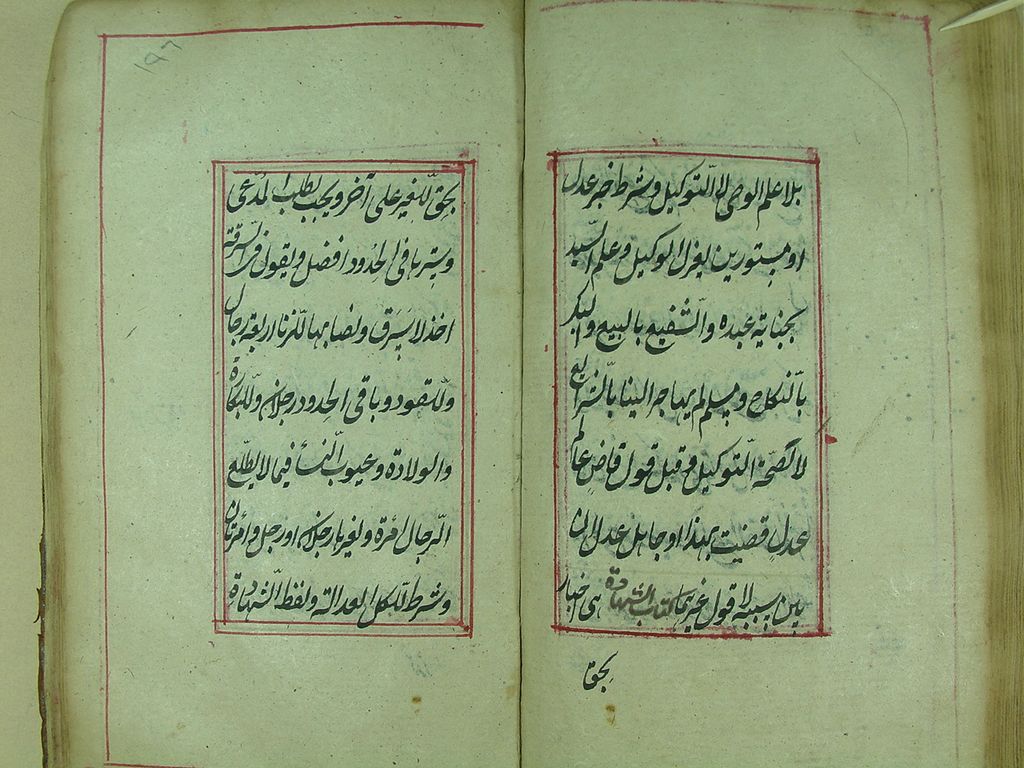 بلا علم الوصى لا التوكيل وشرط خبر عدل
او مستورين لعزل الوكيل وعلم السيد
بجناية عبده والشفيع بالبيع والبكر
بالنكاح ومسلم لم يهاجر الينا بالشرائع
لا لصحة التوكيل وقبل قول قاض عالم
عدل قضيت بهذا او جاهل عدل ان
بين سببه لا قول غيرهما كتاب الشهادة هى اخبار
بحق
١٢٦
بحق للغير على آخر ويجب بطلب المدعى
وسترها فى الحدود افضل ويقول فى السرقة
اخذ لا سرق ونصابها للزنا اربعة رجال
وللقود وباقى الحدود رجلان وللبكارة
والولادة وعيوب النسأ فيما لا يطلع
الرجال امرة ولغيرها رجلان او رجل وامرتان
وشرط للكل العدالة ولفظ الشهادة